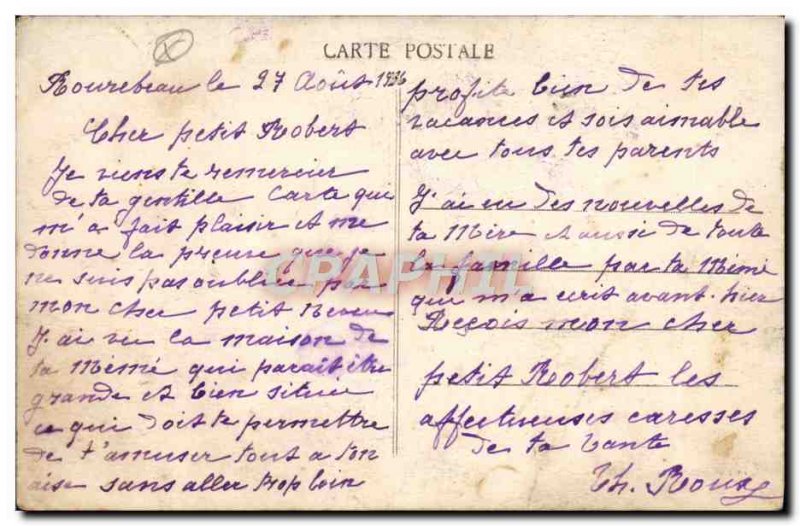 CARTE POSTALE
Rourebeau le 27 Août 1936
Cher petit Robert
Je viens te remercier
de ta gentille Carte qui
m'a fait plaisir et me
donne la preuve que je
ne suis pas oubliée par
mon cher petit Neveu
J'ai vu la maison de
ta Mémé qui parait être
grande et bien située
ce qui doit te permettre
de t'amuser tout a ton
aise sans aller trop loin
profite bien de tes
vacances et sois aimable
avec tous tes parents
J'ai eu des nouvelles de
ta Mère et aussi de toute
la famille par ta Mémé
qui m'a ecrit avant-hier
Reçois mon cher
petit Robert les
affectueuses caresses
de ta tante
Th. Roux
CPAPHIL